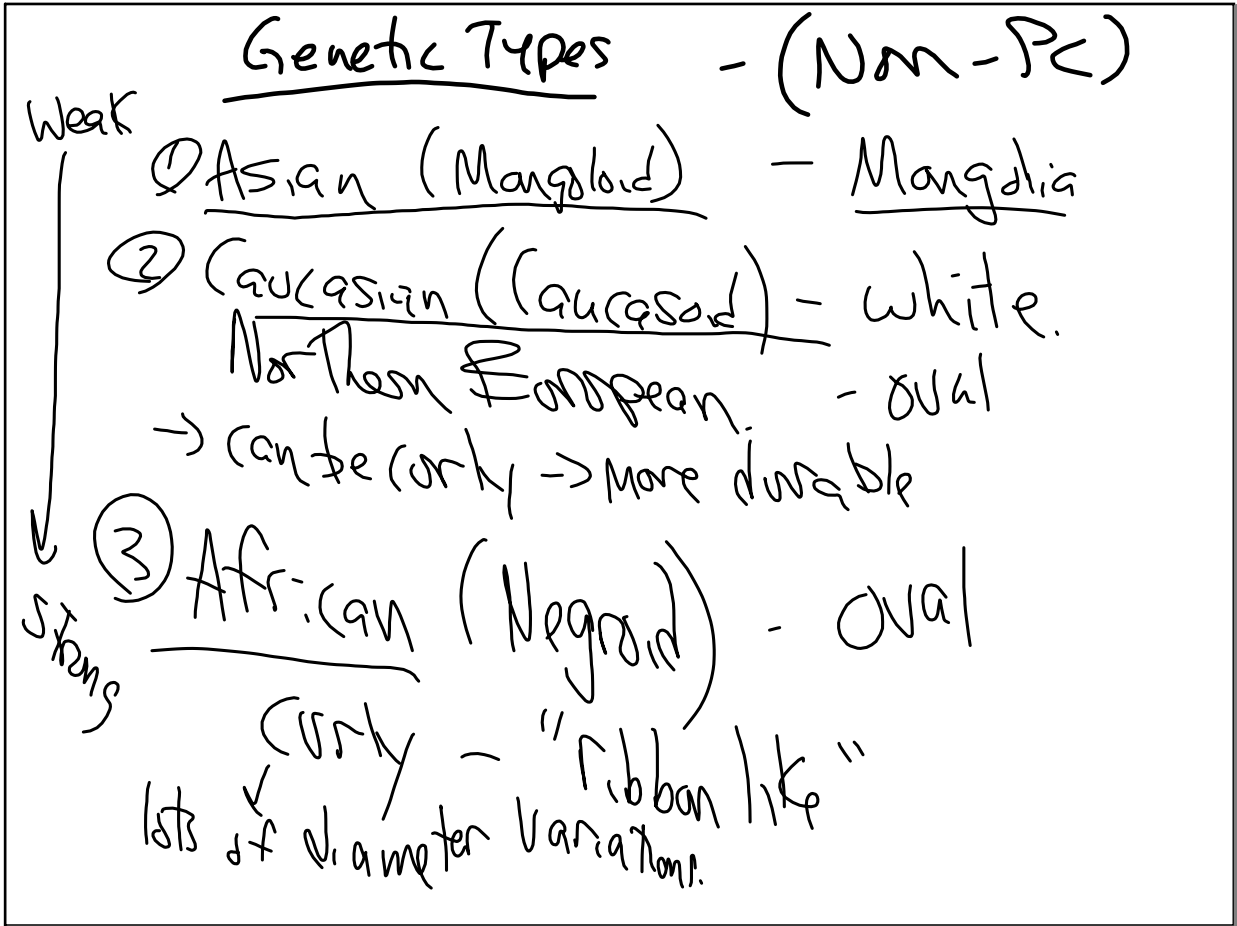 Genetic Types - (Non-PC)
Weak
① Asian (Mongoloid) - Mongolia
② Caucasian (Caucasoid) - white.
Northern European. - oval
→ can be curly → more durable
③ African (Negroid) - oval
Strong
curly - "ribbon like"
lots of diameter variations.